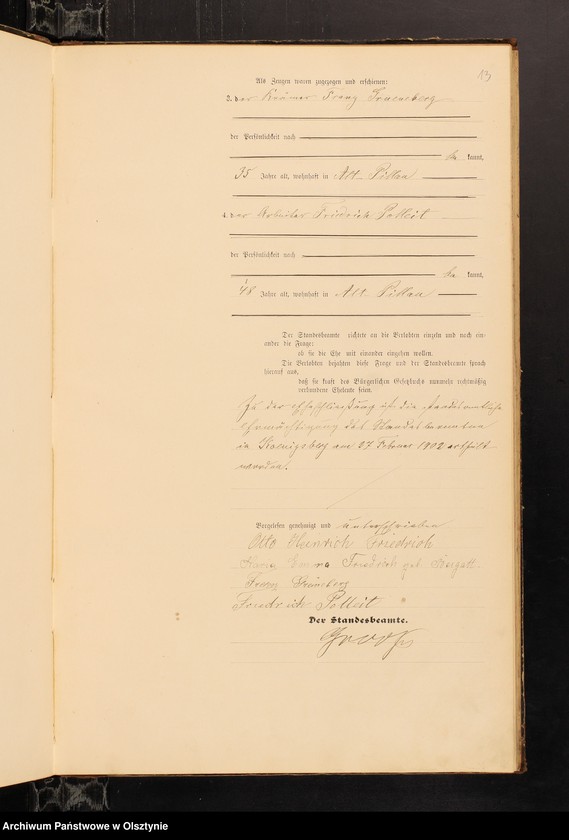 13
Als Zeugen waren zugezogen und erschienen:
3. der Krämer Franz Grueneberg
der Persönlichkeit nach
be kannt,
35 Jahre alt, wohnhaft in Alt Pillau
4. der Arbeiter Friedrich Polleit
der Persönlichkeit nach
be kannt,
48 Jahre alt, wohnhaft in Alt Pillau
Der Standesbeamte richtete an die Verlobten einzeln und nach ein-
ander die Frage:
ob sie die Ehe mit einander eingehen wollen.
Die Verlobten bejahten diese Frage und der Standesbeamte sprach
hierauf aus,
daß sie kraft des Bürgerlichen Gesetzbuchs nunmehr rechtmäßig
verbundene Eheleute seien.
Zu der Eheschließung ist die standesamtliche
Ermächtigung des Standesbeamten
in Koenigsberg am 07 Februar 1902 ertheilt
worden.
Vorgelesen, genehmigt und unterschrieben
Otto Heinrich Friedrich
Emma Friedrich geb.
Franz Grüneberg
Friedrich Polleit
Der Standesbeamte.
Archiwum Państwowe w Olsztynie